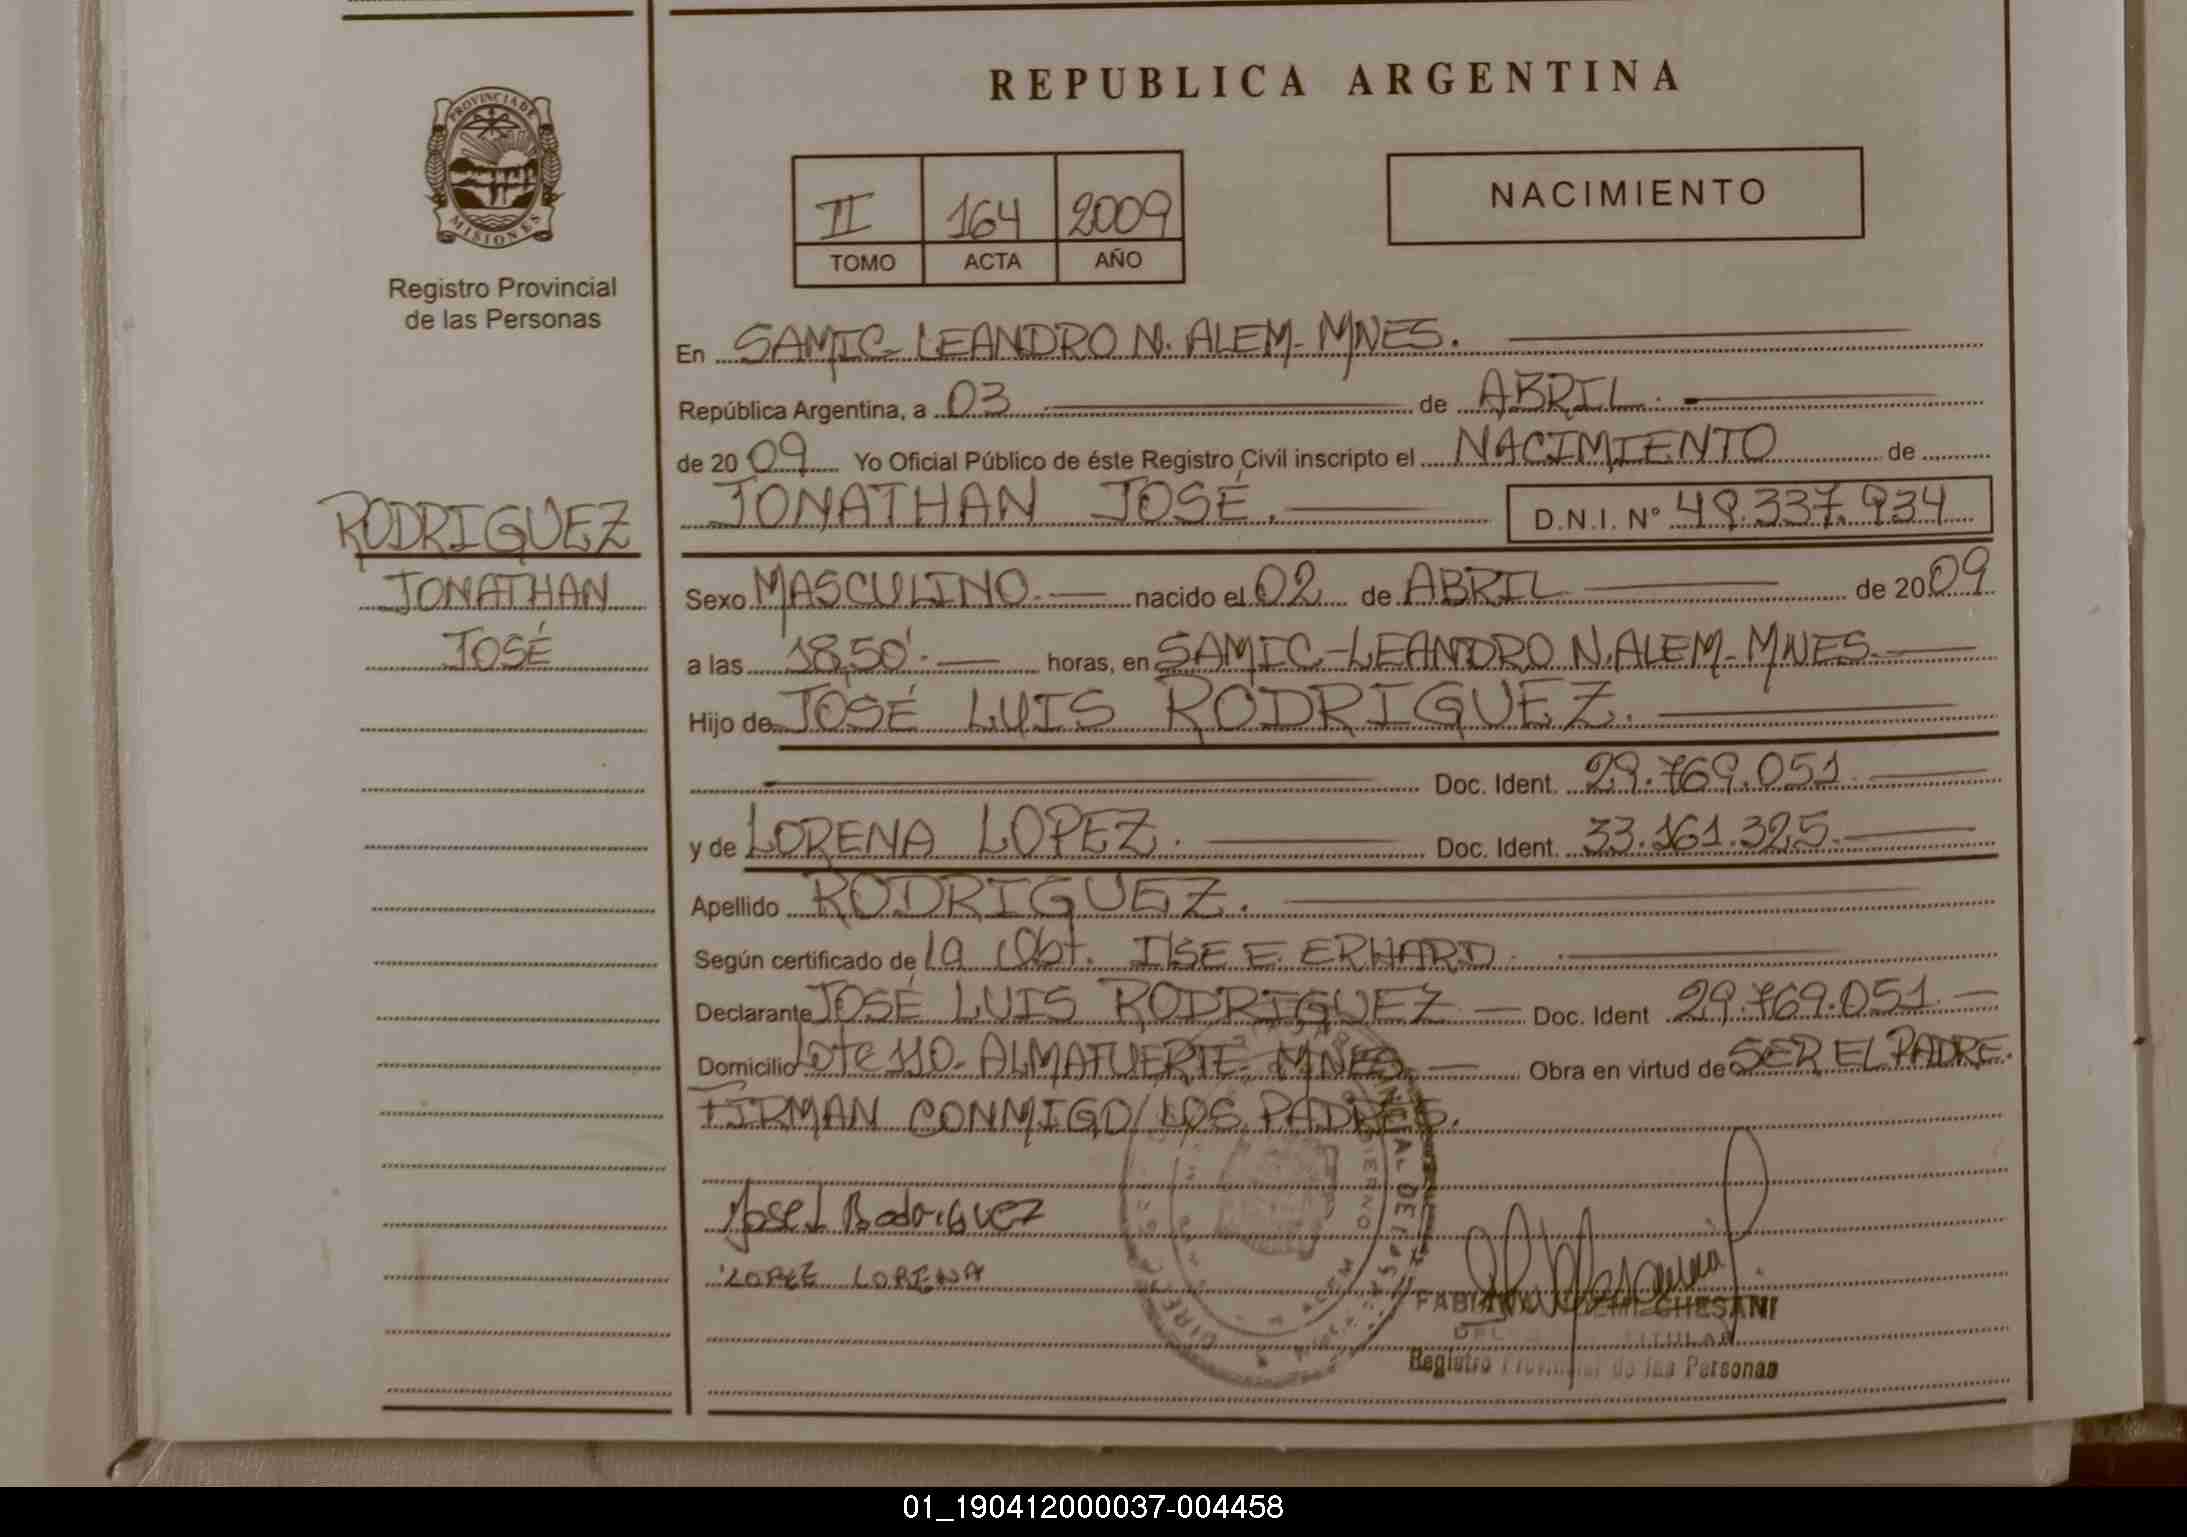 REPUBLICA ARGENTINA
PROVINCIA DE
MISIONES
Registro Provincial
de las Personas
II 164 2009
TOMO ACTA AÑO
NACIMIENTO
En SAMIC-LEANDRO N. ALEM-MNES.
República Argentina, a 03 de ABRIL.
de 2009 Yo Oficial Público de éste Registro Civil inscripto el NACIMIENTO de
JONATHAN JOSÉ. D.N.I. Nº 49.337.934
RODRIGUEZ
JONATHAN
JOSÉ
Sexo MASCULINO. nacido el 02 de ABRIL de 2009
a las 18,50'. horas, en SAMIC-LEANDRO N. ALEM-MNES.
Hijo de JOSÉ LUIS RODRIGUEZ.
Doc. Ident. 29.769.051.
y de LORENA LOPEZ. Doc. Ident. 33.161.325.
Apellido RODRIGUEZ.
Según certificado de la Obt. ILSE E. ERHARD.
Declarante JOSÉ LUIS RODRIGUEZ Doc. Ident 29.769.051.
Domicilio Lote 110-ALMAFUERTE-MNES. Obra en virtud de SER EL PADRE.
FIRMAN CONMIGO/LOS PADRES.
Jose L Rodriguez
LOPEZ LORENA
CHESANI
TITULAR
Registro Provincial de las Personas
01_190412000037-004458